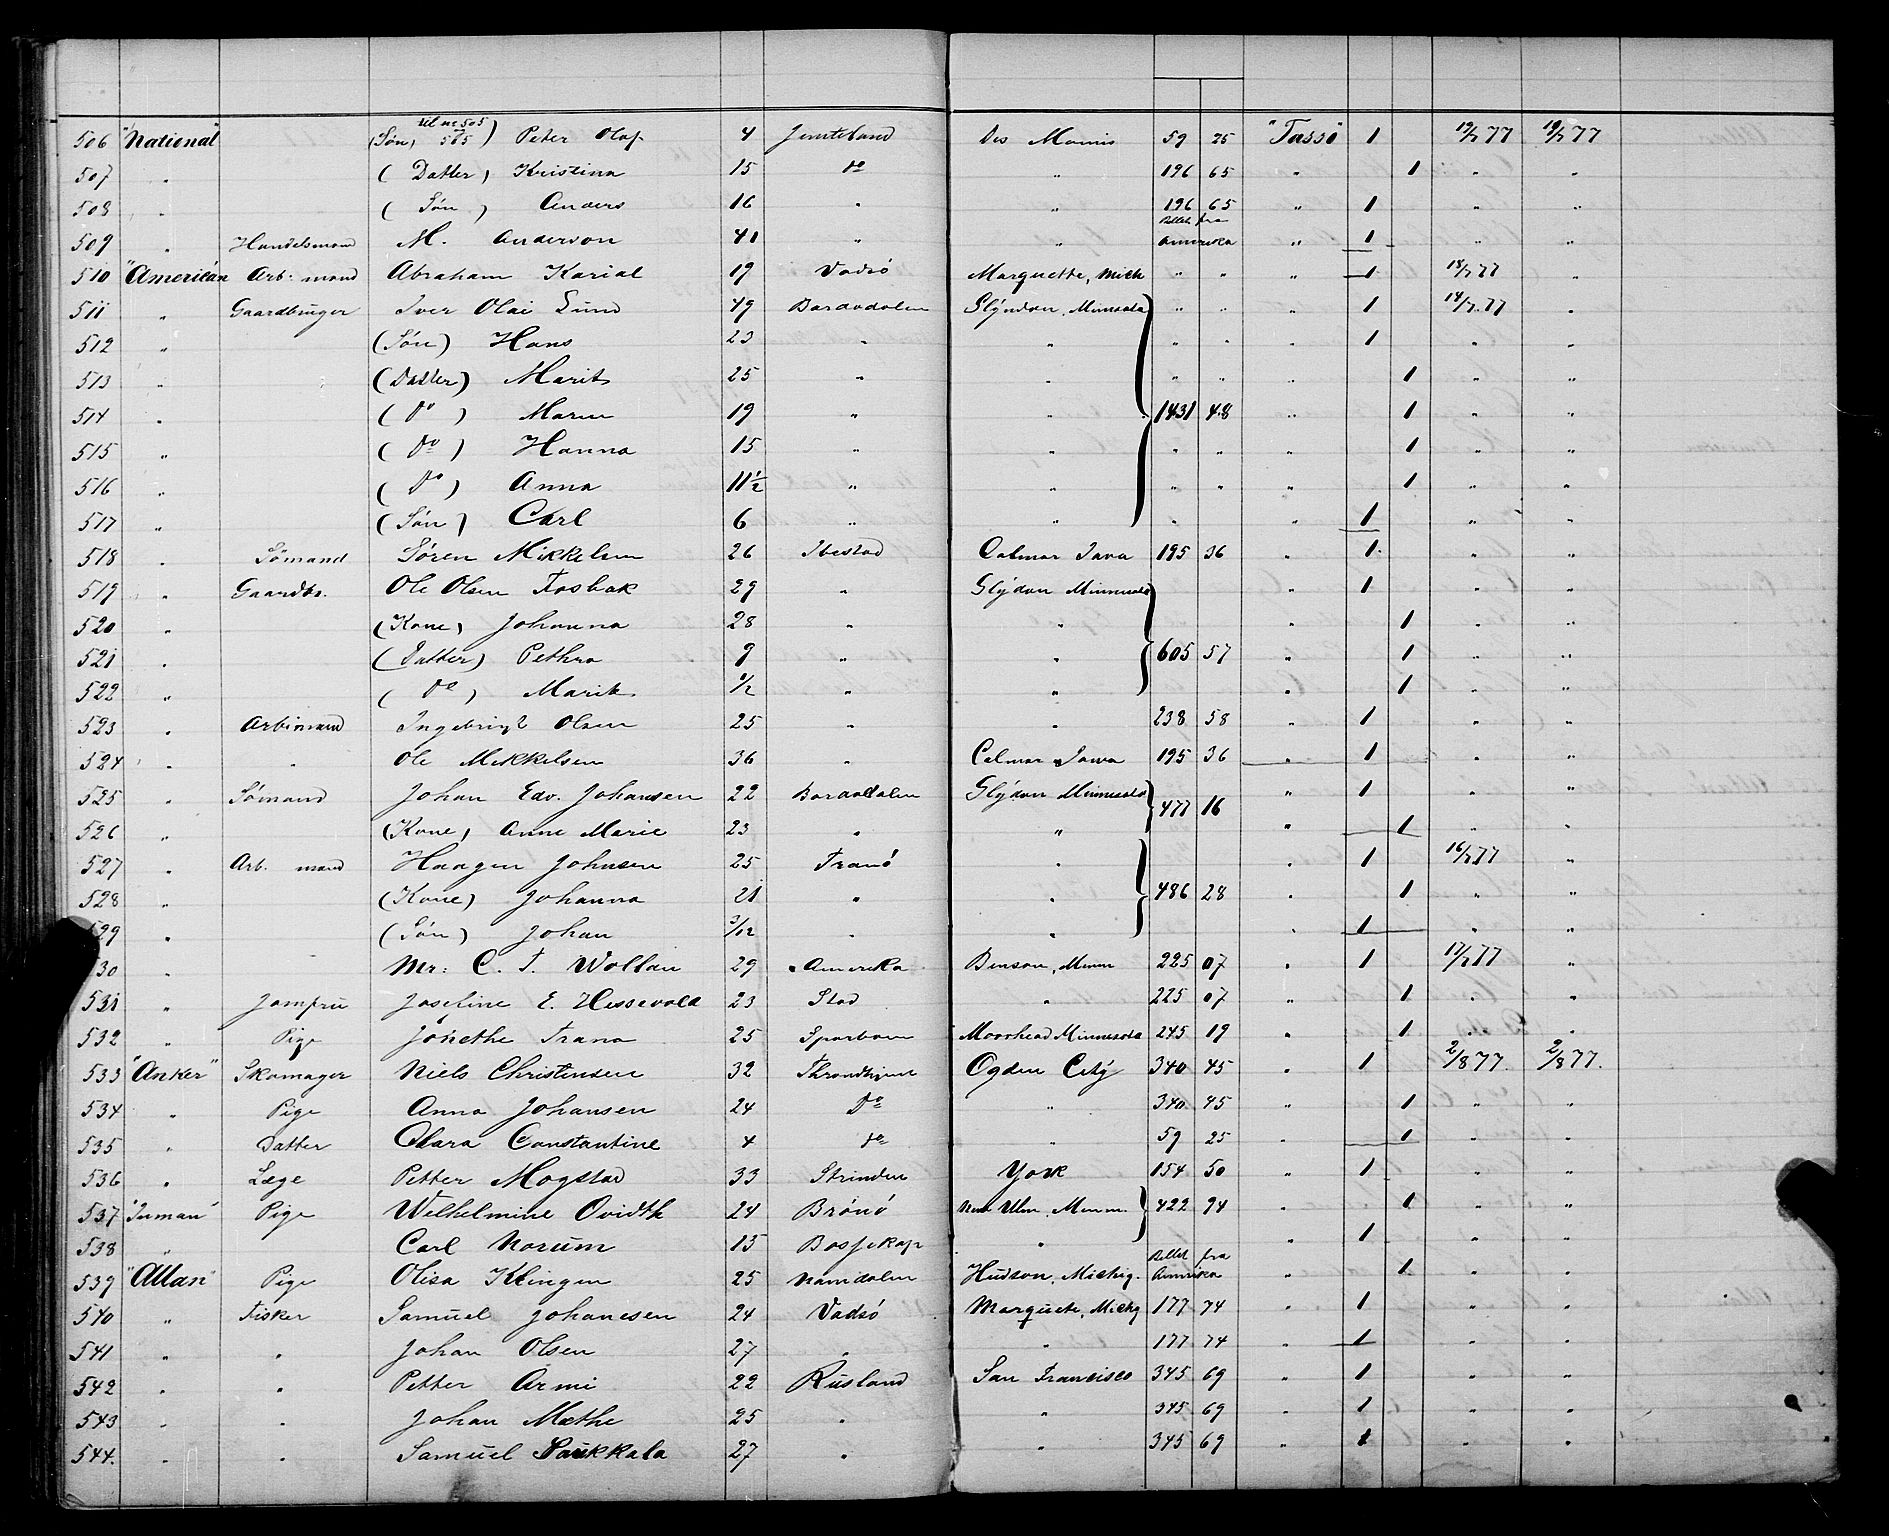 506 "National" (Søn, til no 505 575) Peter Olaf 4 Jemteland Des Moines 59 25 "Tasso" 1 19/7 77 19/7 77
507 " (Datter) Kristina 15 do " 196 65 " 1 " "
508 " (Søn) Anders 16 " " 196 65 " 1 " "
509 " Handelsmand M. Anderson 41 " " Billet fra Amerika " 1 " "
510 "American Arb: mand Abraham Karial 19 Vadsö Marquette, Mich " " " 1 18/7 77 "
511 " Gaardbruger Iver Olai Lund 49 Bardodalen Glyndon, Minnesota " " " 1 14/7. 77 "
512 " (Søn) Hans 23 " " " " " 1 " "
513 " (Datter) Marit 25 " " " " " 1 " "
514 " (Do) Maren 19 " " 1431 48 " 1 " "
515 " (Do) Hanna 15 " " " " " 1 " "
516 " (Do) Anna 11½ " " " " " 1 " "
517 " (Søn) Carl 6 " " " " 1 " "
518 " Sömand Sören Mikkelsen 26 Ibestad Calmar Iava 195 36 " 1 " "
519 " Gaardbr. Ole Olsen Fosbak 29 " Glyndon Minnesota " 1 " "
520 " (Kone) Johanna 28 " " " 1 " "
521 " (Datter) Pethra 9 " " 605 57 " 1 " "
522 " (Do) Marit ½ " " " 1 " "
523 " Arbimand Ingebrigt Olsen 25 " " 238 58 " 1 " "
524 " " Ole Mikkelsen 36 " Calmar Iowa 195 36 " 1 " "
525 " Sömand Johan Edv. Johansen 22 Bardodalen Glyndon Minnesota 477 16 " 1 " "
526 " (Kone) Anne Marie 23 " " " 1 " "
527 " Arb. mand Haagen Johnsen 25 Tranö " " 1 16/7 77 "
528 " (Kone) Johanna 21 " " 486 28 " 1 " "
529 " (Søn) Johan 3/12 " " " 1 " "
30 " Mr: C. T. Wollan 29 Amerika Benson, Minn 225 07 " 1 17/7 77 "
531 " Jomfru Josefine E. Hessevold 23 Stod " 225 07 " 1 " "
532 " Pige Jonethe Trana 25 Sparboen Moorhead Minnesota 245 19 " 1 " "
533 "Anker" Skomager Niels Christensen 32 Throndhjem Ogden City 340 45 " 1 2/8 77. 2/8 77.
534 " Pige Anna Johansen 24 Do " 340 45 " 1 " "
535 " Datter Clara Constantine 4 do " 59 25 " 1 " "
536 " Læge Petter Mogstad 33 Strinden York 154 50 " 1 " "
537 "Inman" Pige Wilhelmine Qvidth 24 Brönö New Ulm, Minn. 422 94 " 1 " "
538 " Carl Norum 15 Bossekop " " 1 " "
539 "Allan" Pige Olisa Klingen 25 Namdalen Hudson, Michig. Billet fra Amerika " 1 " "
540 " Fisker Samuel Johanesen 24 Vadsö Marquete, Michg 177 74 " 1 " "
541 " " Johan Olsen 27 " " 177 74 " 1 " "
542 " " Petter Armi 22 Rusland San Francisco 345 69 " 1 " "
543 " " Johan Mathe 25 " " 345 69 " 1 " "
544. " " Samuel Paukkala 27 " " 345 69 " 1 " "